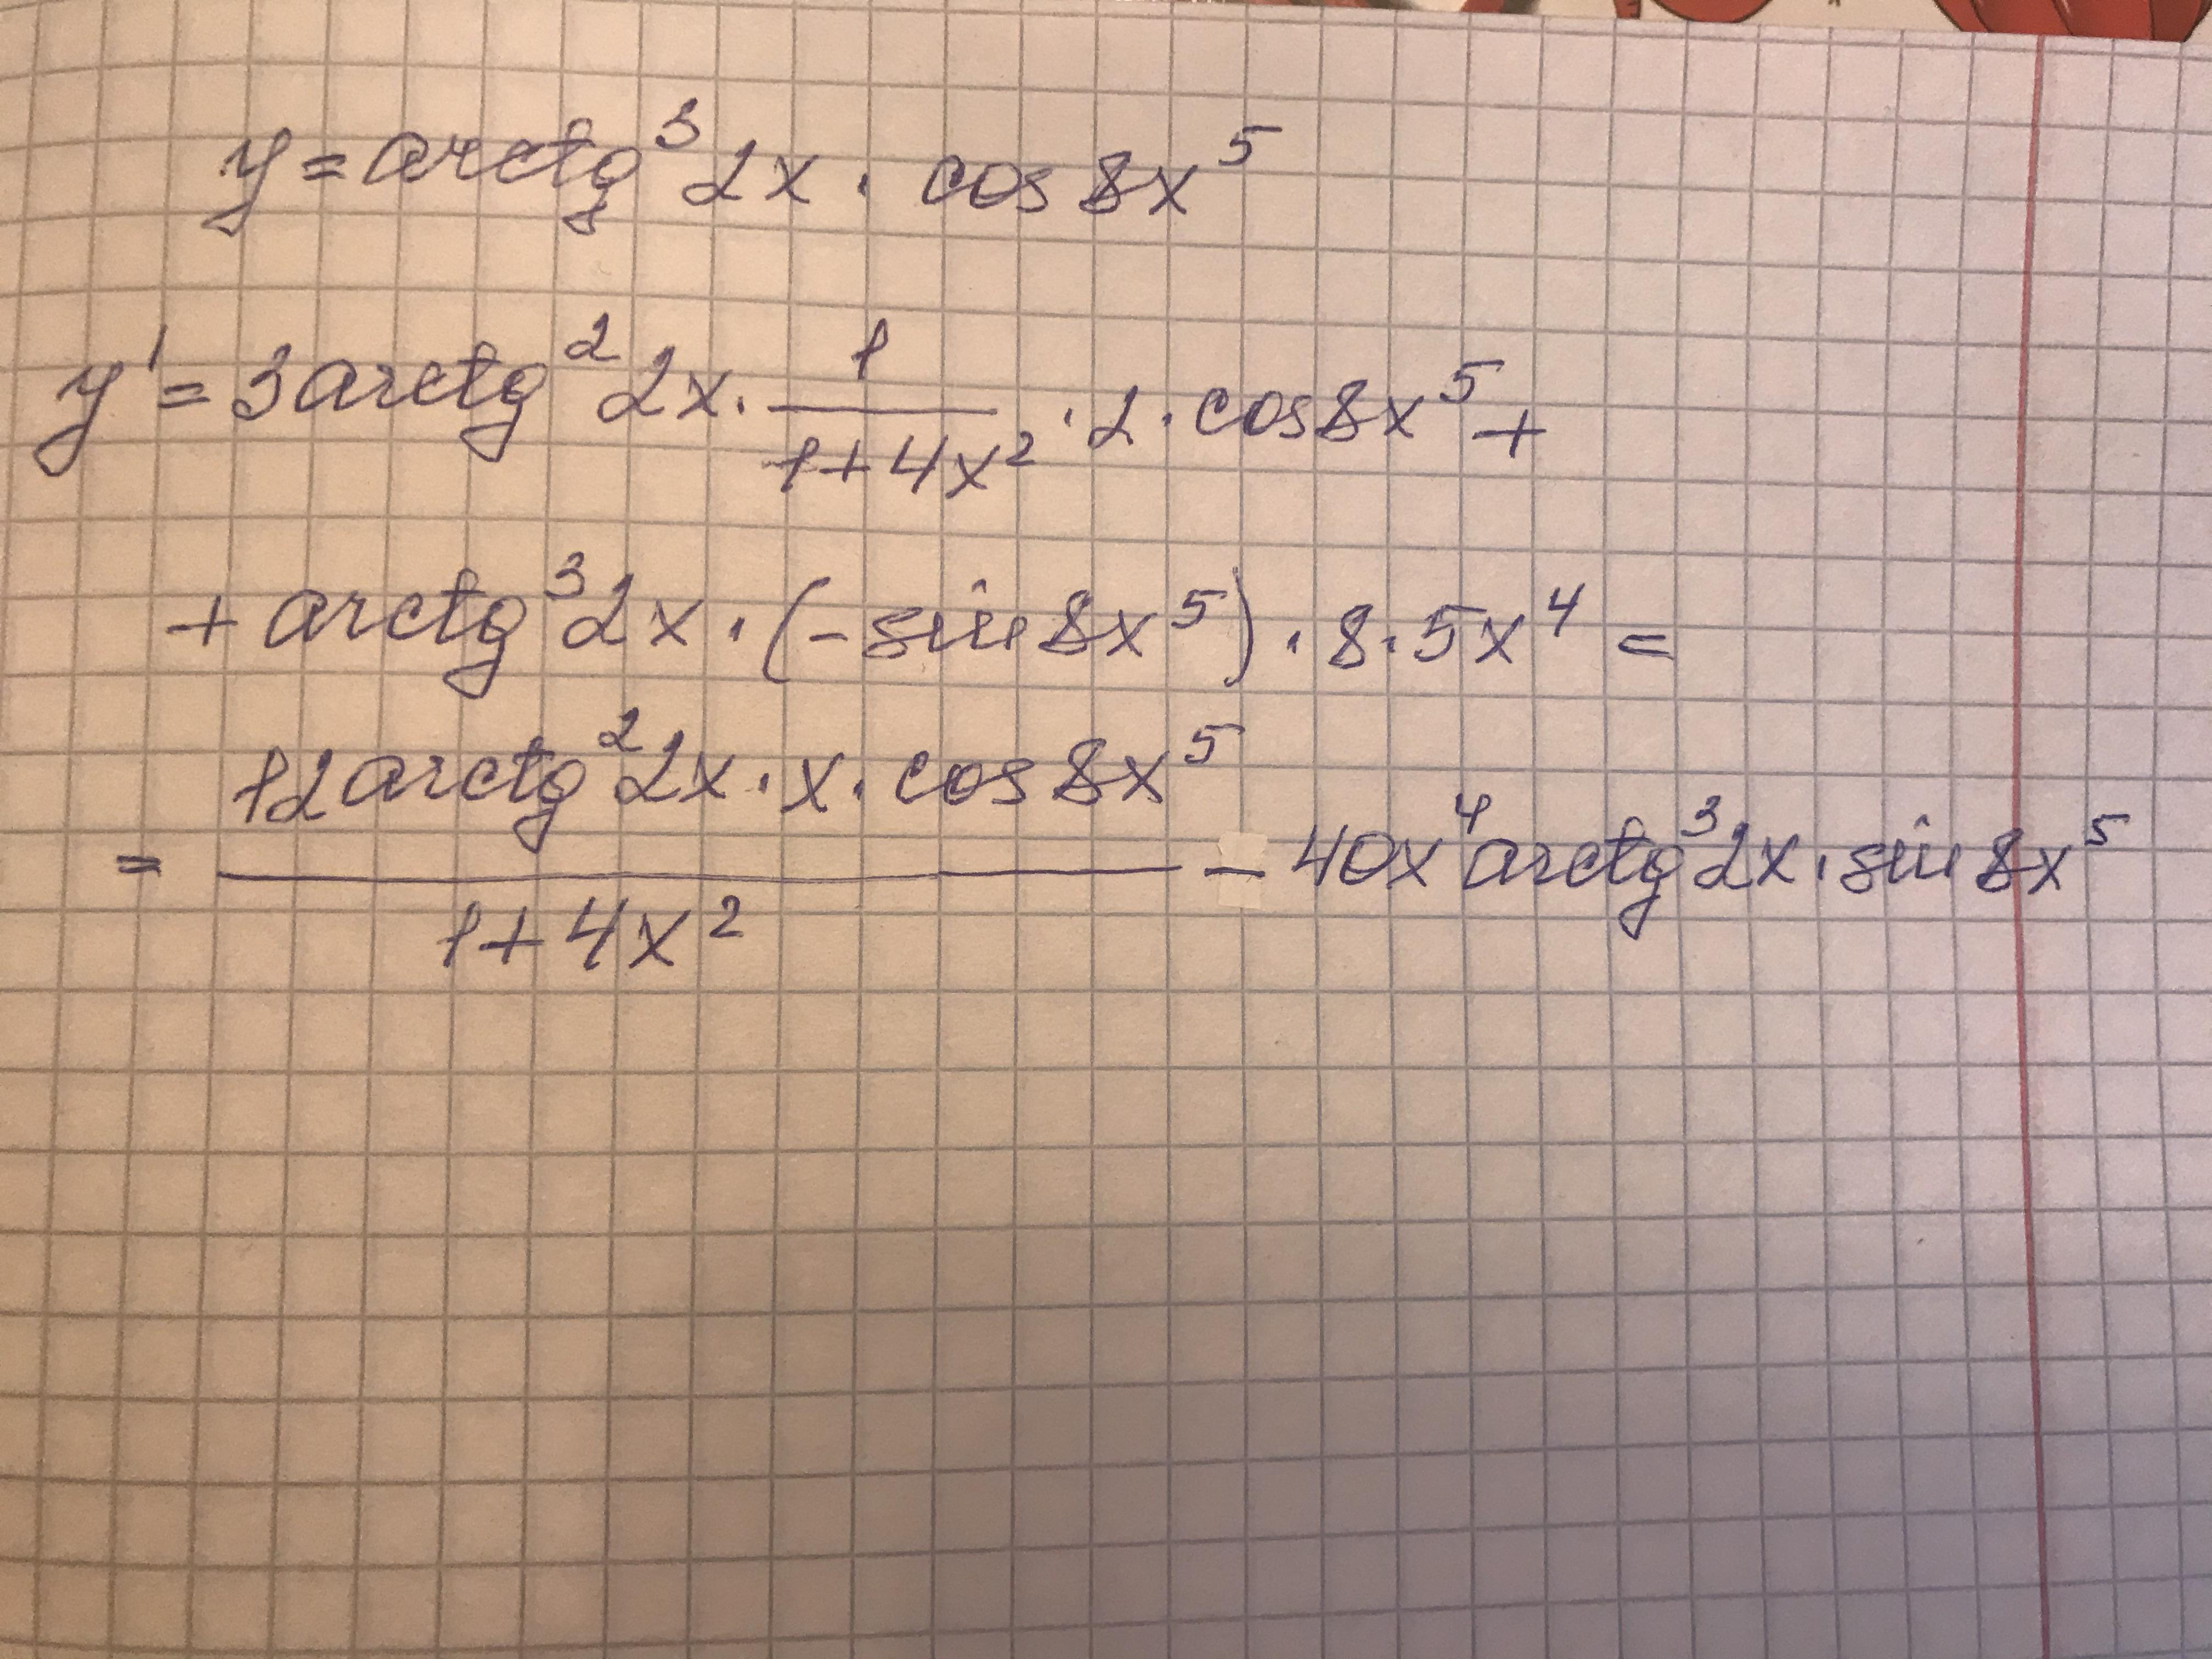 y = arctg³ 2x · cos 8x⁵
y' = 3 arctg² 2x · 1/(1+4x²) · 2 · cos 8x⁵ +
+ arctg³ 2x · (- sin 8x⁵) · 8 · 5x⁴ =
= (12 arctg² 2x · x · cos 8x⁵)/(1+4x²) - 40x⁴ arctg³ 2x · sin 8x⁵